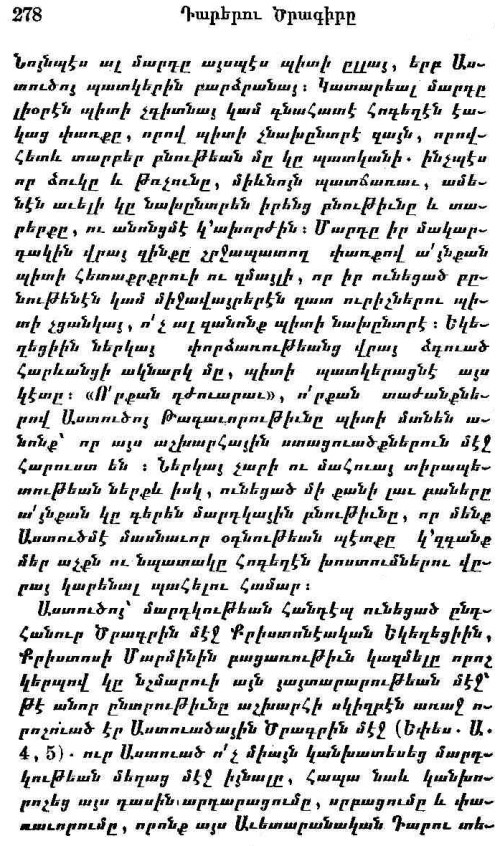 278 Դարերու Ծրագիրը
Նոյնպէս ալ մարդը այսպէս պիտի ըլլայ, երբ Աս-
տուծոյ պատկերին բարձրանայ։ Կատարեալ մարդը
լիօրէն պիտի չգիտնայ կամ գնահատէ Հոգեղէն էա-
կաց փառքը, որով պիտի չնախընտրէ զայն, որով-
հետև տարբեր բնութեան մը կը պատկանի. ինչպէս
որ ձուկը և թռչունը, միևնոյն պատճառաւ, ամե-
նէն աւելի կը նախընտրեն իրենց բնութիւնը և տա-
րերքը, ու անոնցմէ կ՚ախորժին։ Մարդը իր մակար-
դակին վրայ զինքը շրջապատող փառքով ա՛յնքան
պիտի հետաքրքրուի ու զմայլի, որ իր ունեցած բը-
նութենէն կամ միջավայրերէն զատ ուրիշներու պի-
տի չցանկայ, ո՛չ ալ զանոնք պիտի նախընտրէ ։ Եկե-
ղեցիին ներկայ փորձառութեանց վրայ ձգուած
հարևանցի ակնարկ մը, պիտի պատկերացնէ այս
կէտը։ «Ո՛րքան դժուարաւ», ո՛րքան տաժանքնե-
րով Աստուծոյ Թագաւորութիւնը պիտի մտնեն ա-
նոնք՝ որ այս աշխարհային ստացուածքներուն մէջ
հարուստ են ։ Ներկայ չարի ու մահուայ տիրապե-
տութեան ներքև իսկ, ունեցած մի քանի լաւ բաները
ա՛յնքան կը գերեն մարդկային բնութիւնը, որ մենք
Աստուծմէ մասնաւոր օգնութեան պէտքը կ՚զգանք
մեր աչքն ու նպատակը Հոգեղէն խոստումներու վը-
րայ կարենալ պահելու համար։
Աստուծոյ՝ մարդկութեան հանդէպ ունեցած ընդ-
հանուր Ծրագրին մէջ Քրիստոնէական Եկեղեցիին,
Քրիստոսի Մարմինին բացառութիւն կազմելը որոշ
կերպով կը նշմարուի այն յայտարարութեան մէջ՝
թէ անոր ընտրութիւնը աշխարհի սկիզբէն առաջ ո-
րոշուած էր Աստուածային Ծրագրին մէջ (Եփես. Ա.
4, 5). ուր Աստուած ո՛չ միայն կանխատեսեց մարդ-
կութեան մեղաց մէջ իյնալը, հապա նաև կանխո-
րոշեց այս դասին արդարացումը, սրբացումը և փա-
ռաւորումը, որոնք այս Աւետարանական Դարու տե-